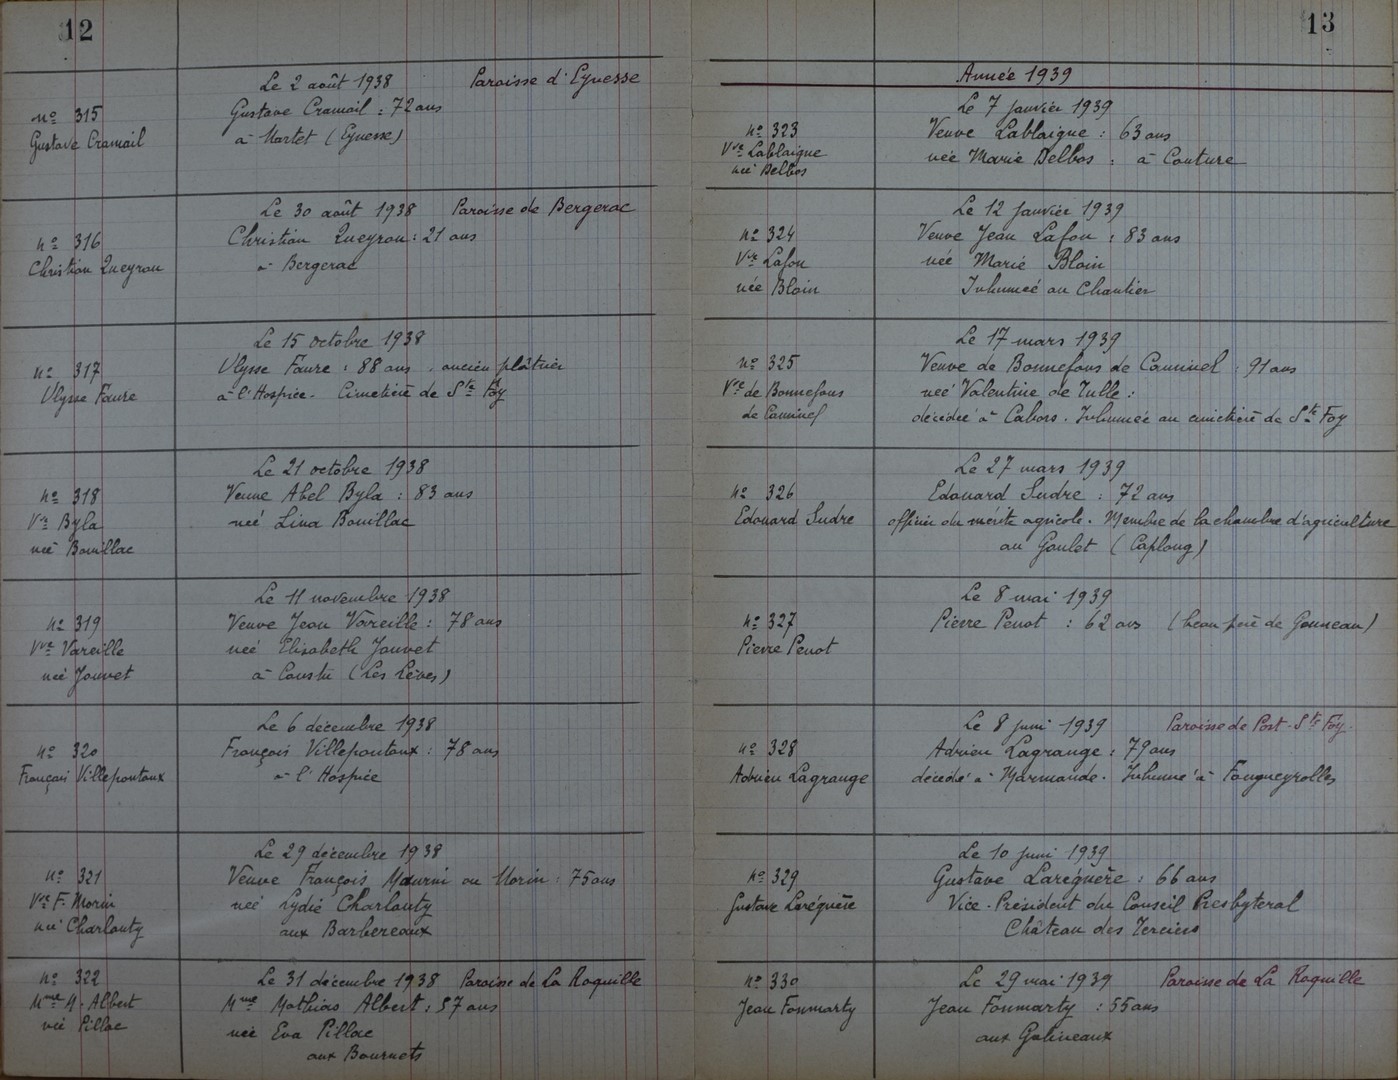 12
Le 2 août 1938 Paroisse d'Eynesse
nº 315 Gustave Cramail : 72 ans
Gustave Cramail à Martet (Eynesse)
Le 30 août 1938 Paroisse de Bergerac
nº 316 Christian Queyrou : 21 ans
Christian Queyrou à Bergerac
Le 15 octobre 1938
nº 317 Ulysse Faure : 88 ans . ancien plâtrier
Ulysse Faure à l'Hospice - Cimetière de Ste Foy
Le 21 octobre 1938
nº 318 Veuve Abel Byla : 83 ans
Vve Byla née Lina Bouillac
née Bouillac
Le 11 novembre 1938
nº 319 Veuve Jean Vareille : 78 ans
Vve Vareille née Elisabeth Jouvet
née Jouvet à Coustu (Les Lèves)
Le 6 décembre 1938
nº 320 François Villepontoux : 78 ans
François Villepontoux à l'Hospice
Le 29 décembre 1938
nº 321 Veuve François Maurin ou Morin : 75 ans
Vve F. Morin née Lydie Charlouty
née Charlouty aux Barbereaux
nº 322 Le 31 décembre 1938 Paroisse de La Roquille
Mme M. Albert Mme Mathias Albert : 57 ans
née Pillac née Eva Pillac
aux Bournets
13
Année 1939
Le 7 janvier 1939
nº 323 Veuve Lablaigue : 63 ans
Vve Lablaigue née Marie Delbos : à Couture
née Delbos
Le 12 janvier 1939
nº 324 Veuve Jean Lafon : 83 ans
Vve Lafon née Marie Bloin
née Bloin Inhumée au Chantier
Le 17 mars 1939
nº 325 Veuve de Bonnefous de Caminel : 91 ans
Vve de Bonnefous née Valentine de Tulle :
de Caminel décédée à Cahors . Inhumée au cimetière de Ste Foy
Le 27 mars 1939
nº 326 Edouard Sudre : 72 ans
Edouard Sudre officier du mérite agricole . Membre de la chambre d'agriculture
au Goulet (Caplong)
Le 8 mai 1939
nº 327 Pierre Penot : 62 ans (beau père de Gouneau)
Pierre Penot
Le 8 juin 1939 Paroisse de Port-Ste Foy.
nº 328 Adrien Lagrange : 79 ans
Adrien Lagrange décédé à Marmande . Inhumé à Fougueyrolles
Le 10 juin 1939
nº 329 Gustave Laréguère : 66 ans
Gustave Laréguère Vice-Président du Conseil Presbyteral
Château des Terciers
nº 330 Le 29 mai 1939 Paroisse de La Roquille
Jean Fonmarty Jean Fonmarty : 55 ans
aux Galineaux